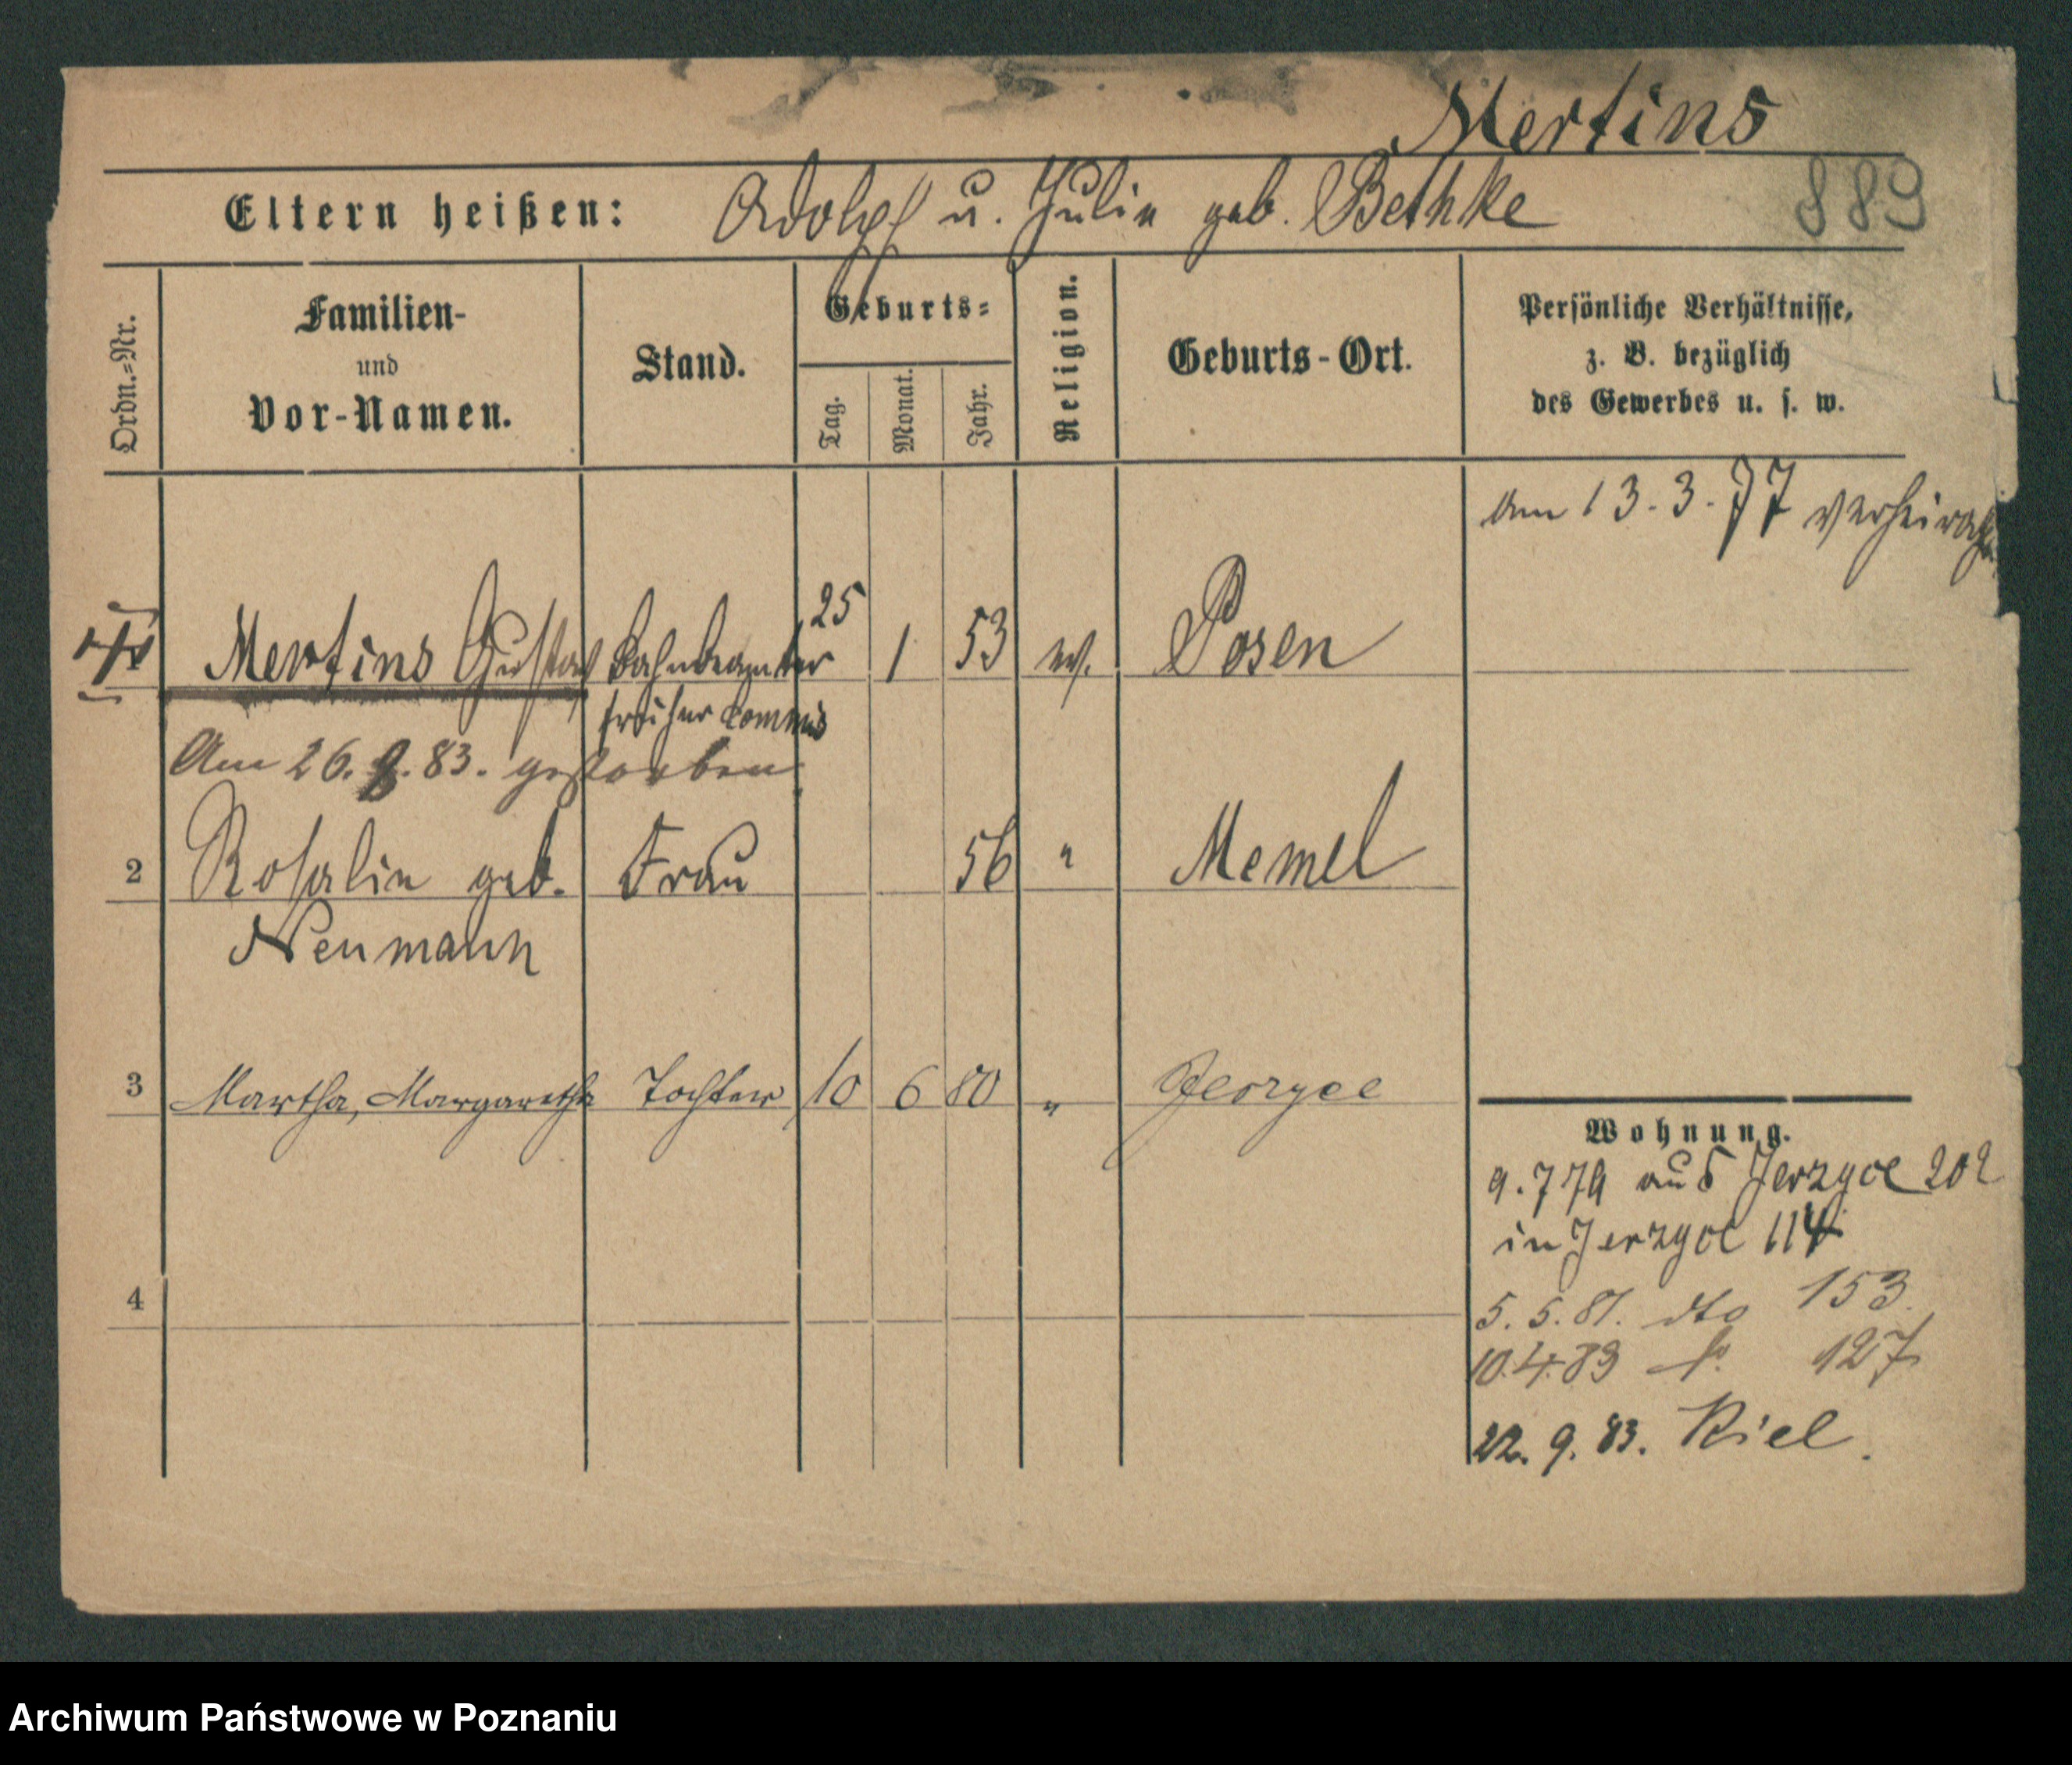 Mertins
Eltern heißen: Adolph u. Julie geb. Bethke 889
Ordn.=Nr.
Familien-
und
Vor-Namen.
Stand.
Geburts=
Tag.
Monat.
Jahr.
Religion.
Geburts-Ort.
Persönliche Verhältnisse,
z. B. bezüglich
des Gewerbes u. s. w.
Am 13. 3. 77 verheirath
Mertins Gustav Bahnbeamter 25 1 53 ev. Posen
früher Commis
Am 26. 9. 83. gestorben
2 Rosalie geb. Frau 56 " Memel
Neumann
3 Martha, Margaretha Tochter 10 6 80 " Jerzyce
4
Wohnung.
9. 7 79 aus Jerzyce 202
in Jerzyce 114
5. 5. 81. dto 153.
10.4.83 127
22. 9. 83. Kiel.
Archiwum Państwowe w Poznaniu